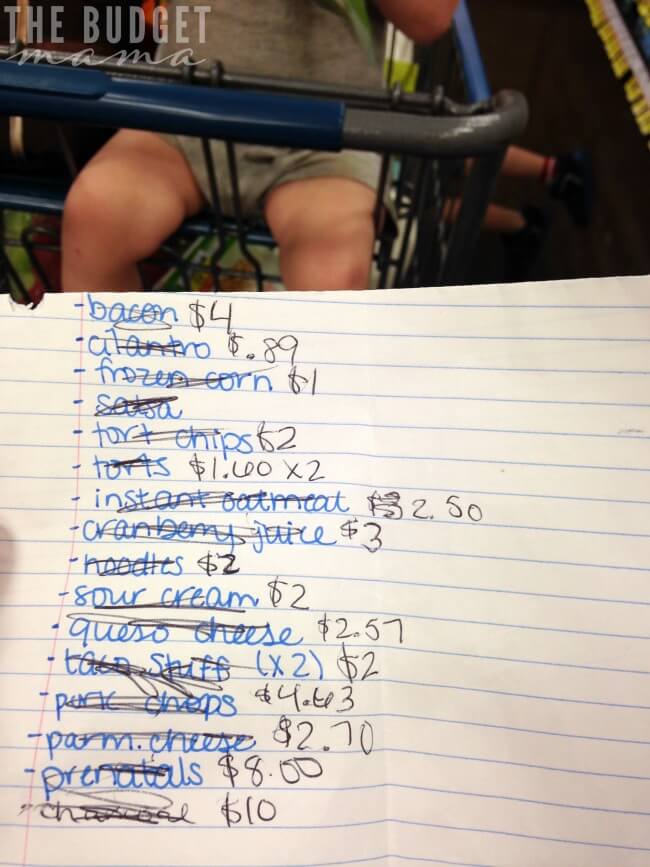 THE BUDGET
mama
-bacon $4
-cilantro $.89
- frozen corn $1
- salsa
- tort chips $2
- torts $1.60 x2
- instant oatmeal $2.50
-cranberry juice $3
-noodles $2
-sour cream $2
-queso cheese $2.57
-taco stuff (x2) $2
-pork chops $4.63
-parm. cheese $2.70
-prenatals $8.00
-charcoal $10